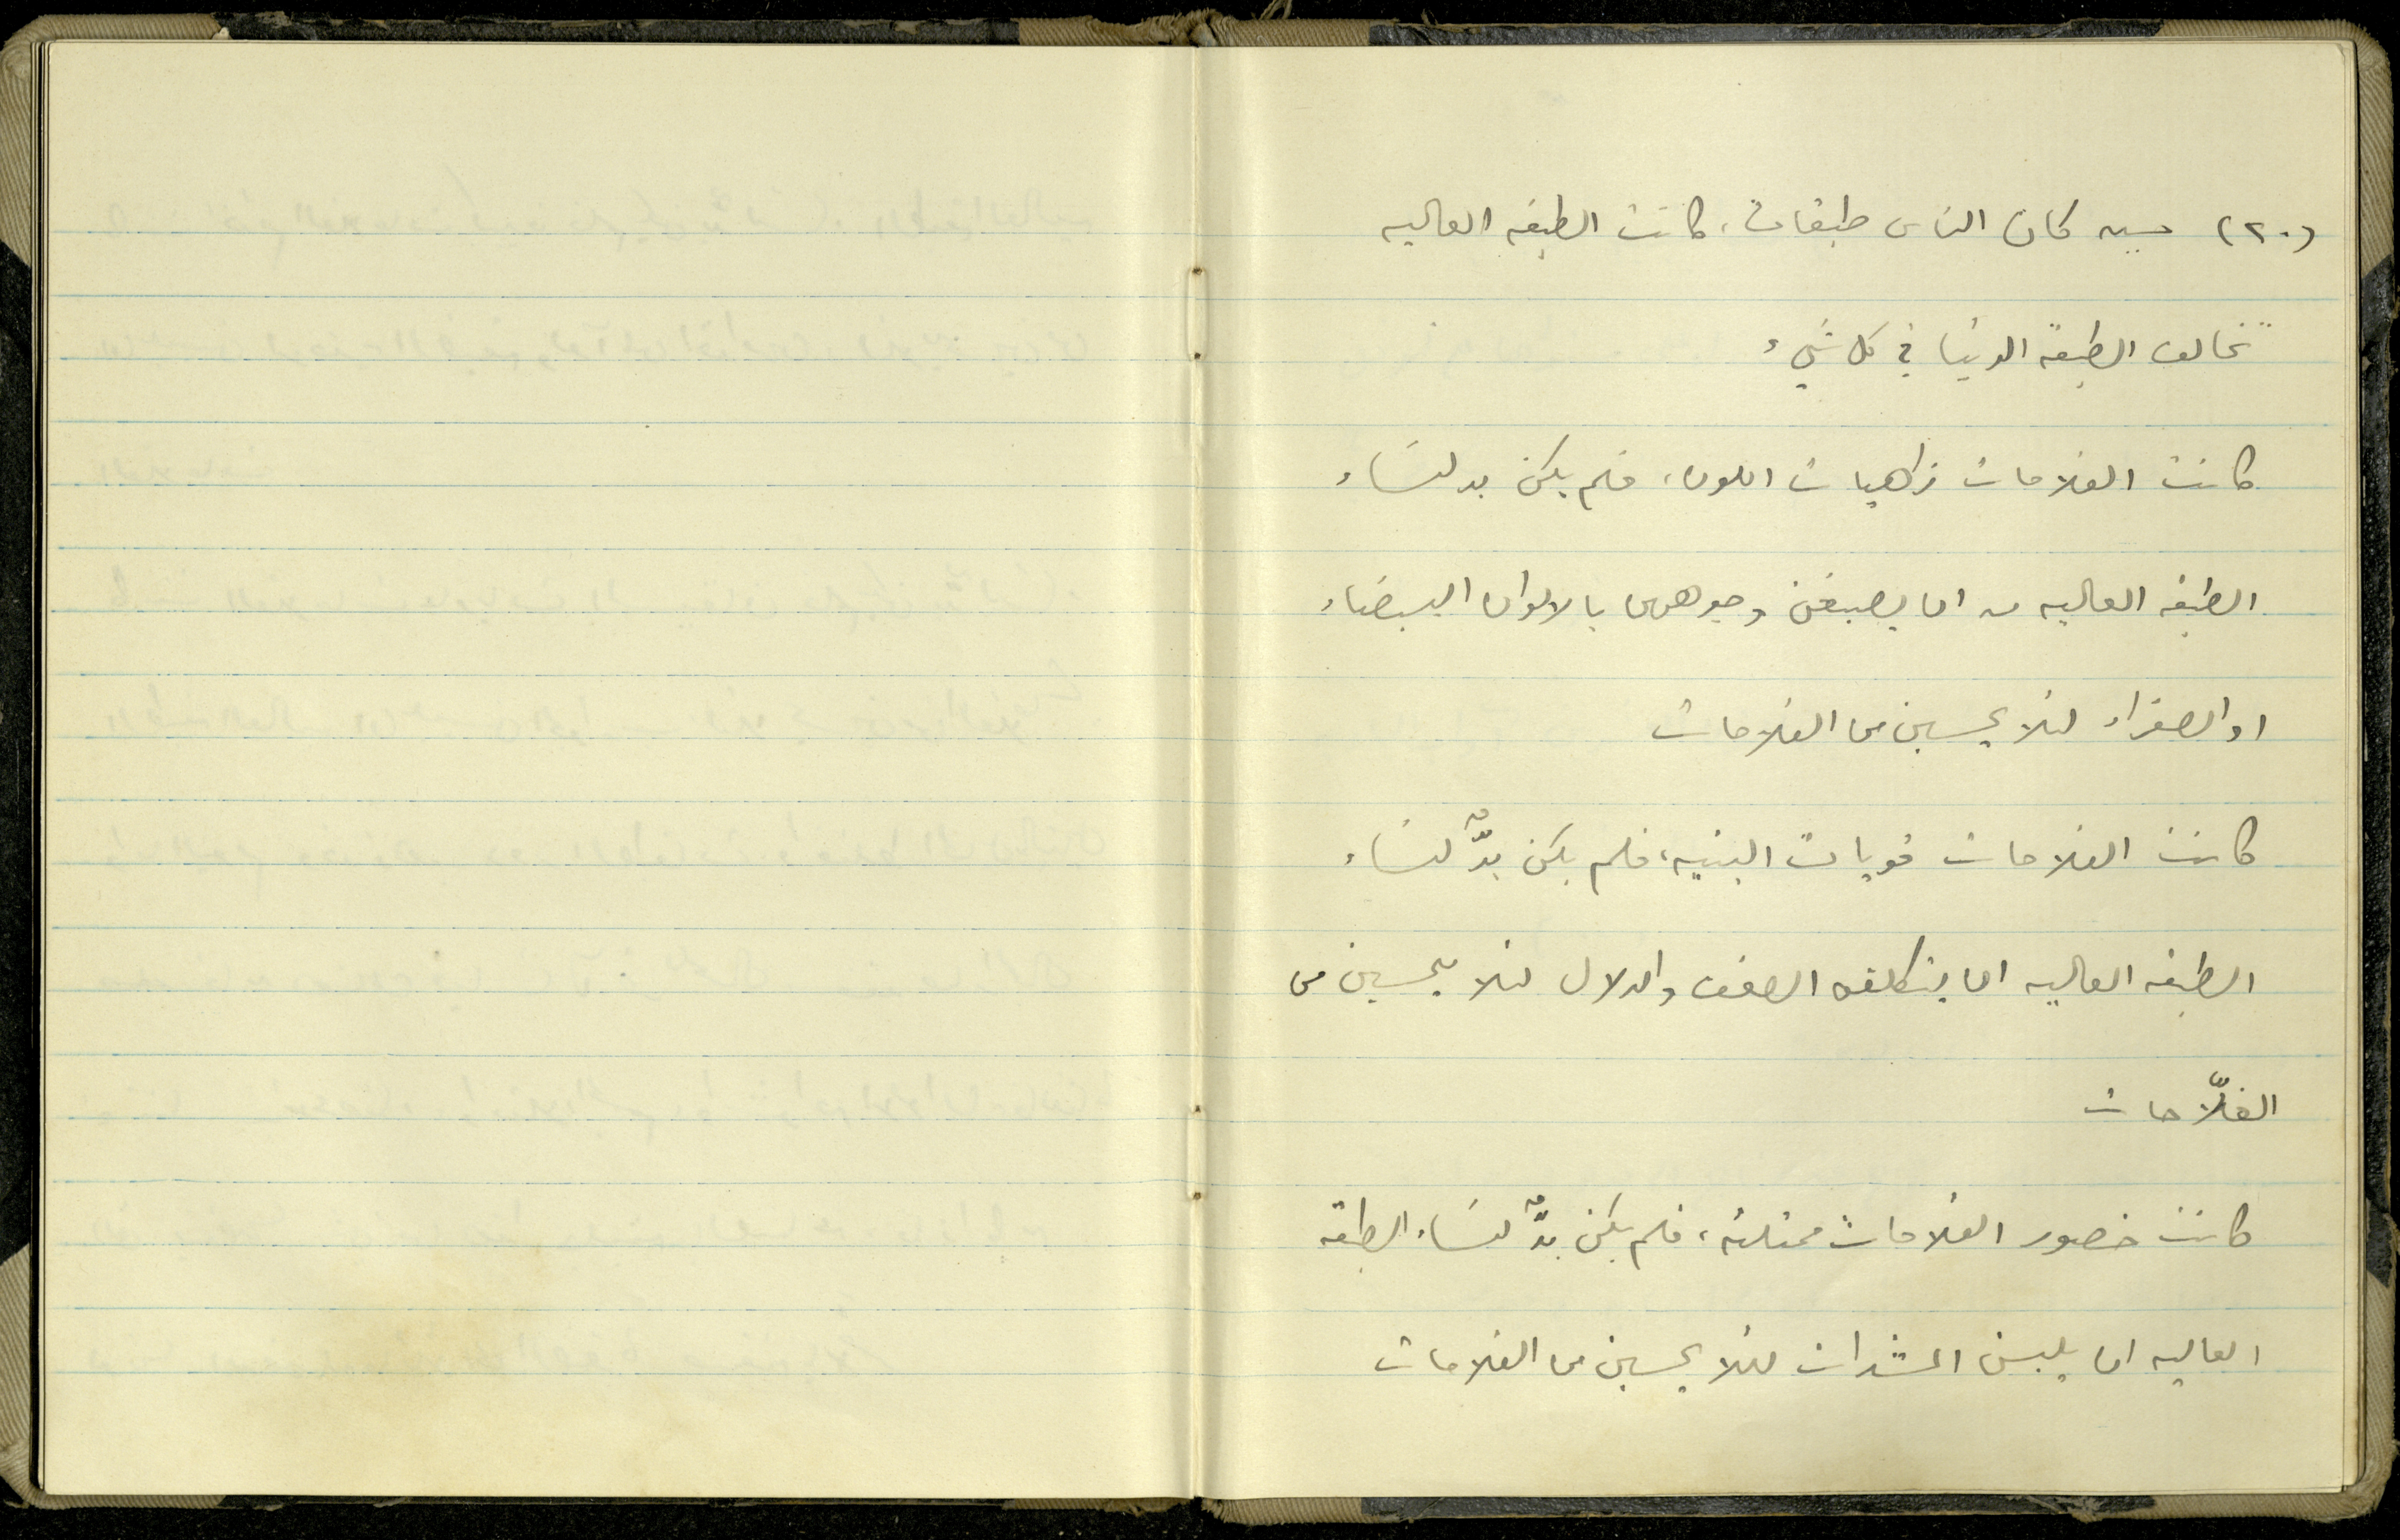 (٢٠) حين كان الناس طبقات، كانت الطبقه العاليه
تخالف الطبقة الدنيا في كل شيء
كانت الفلاحات زاهيات اللون، فلم يكن بد لنساء
الطبقه العاليه من ان يصبغن وجوههن بالالوان البيضاء
او الصفراء لئلا يحسبن من الفلاحات
كانت الفلاحات قويات البنيه، فلم يكن بدٌّ لنساء
الطبقه العاليه ان يتكلفن الضعف والدلال لئلا يحسبن من
الفلّاحات
كانت خصور الفلاحات ممتلئه، فلم يكن بدٌّ لنساء الطبقة
العاليه ان يلبسن المشدات لئلا يحسبن من الفلاحات